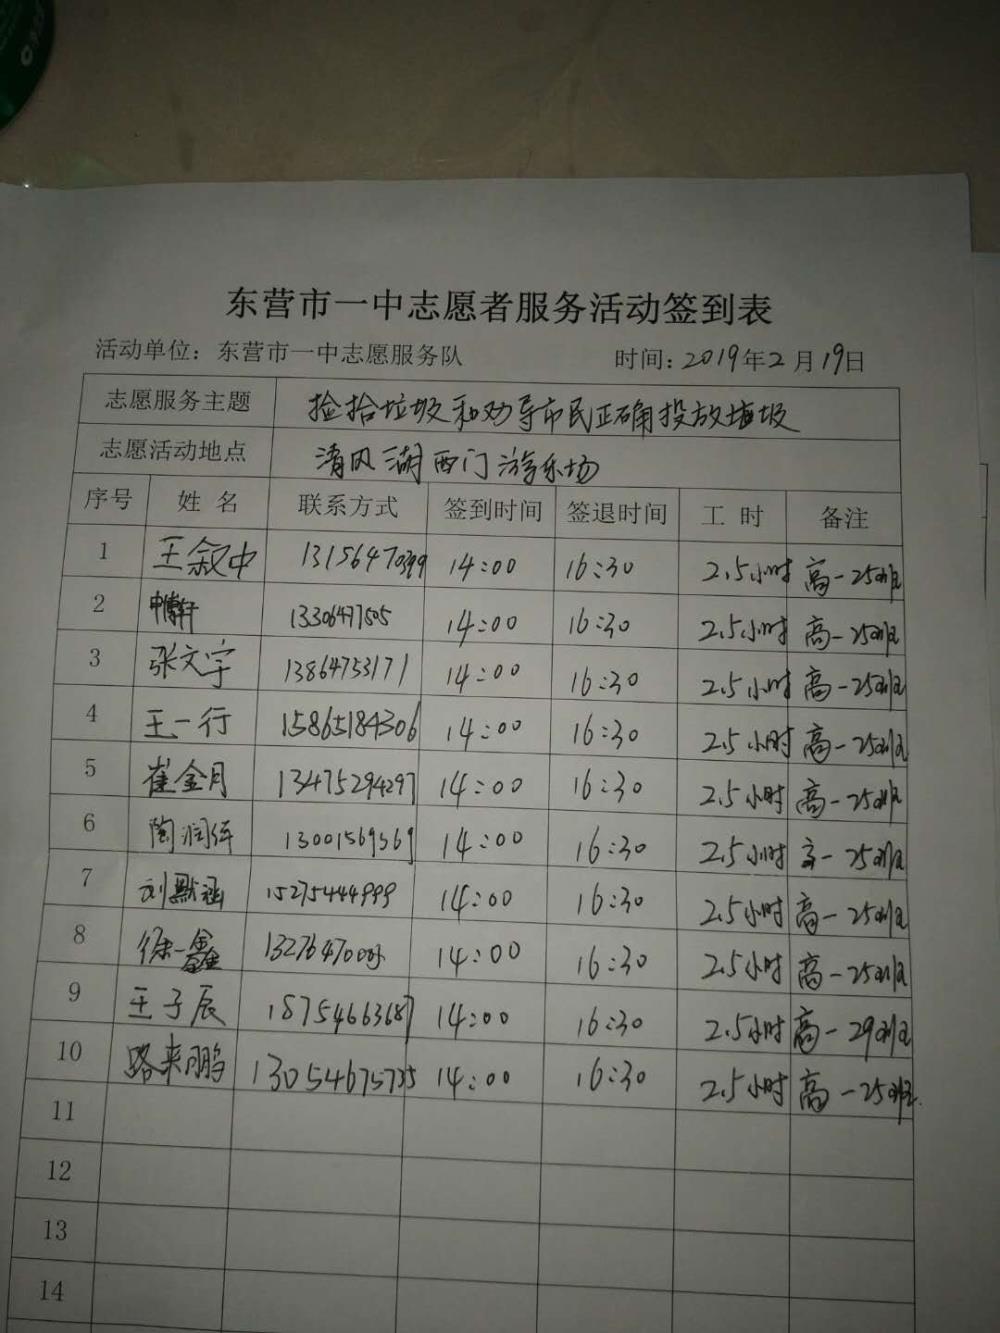 东营市一中志愿者服务活动签到表
活动单位：东营市一中志愿服务队 时间：2019年2月19日
志愿服务主题 捡拾垃圾和劝导市民正确投放垃圾
志愿活动地点 清风湖西门游乐场
序号 姓名 联系方式 签到时间 签退时间 工时 备注
1 王叙中 13156470399 14:00 16:30 2.5小时 高一25班
2 13306477505 14:00 16:30 2.5小时 高一25班
3 张文宇 13864753171 14:00 16:30 2.5小时 高一25班
4 王一行 15865184306 14:00 16:30 2.5小时 高一25班
5 崔金月 13475294297 14:00 16:30 2.5小时 高一25班
6 陶润 13001569569 14:00 16:30 2.5小时 高一25班
7 刘默涵 15275444999 14:00 16:30 2.5小时 高一25班
8 徐一鑫 14:00 16:30 2.5小时 高一25班
9 王子辰 18754663687 14:00 16:30 2.5小时 高一29班
10 路来鹏 13054675735 14:00 16:30 2.5小时 高一25班
11
12
13
14